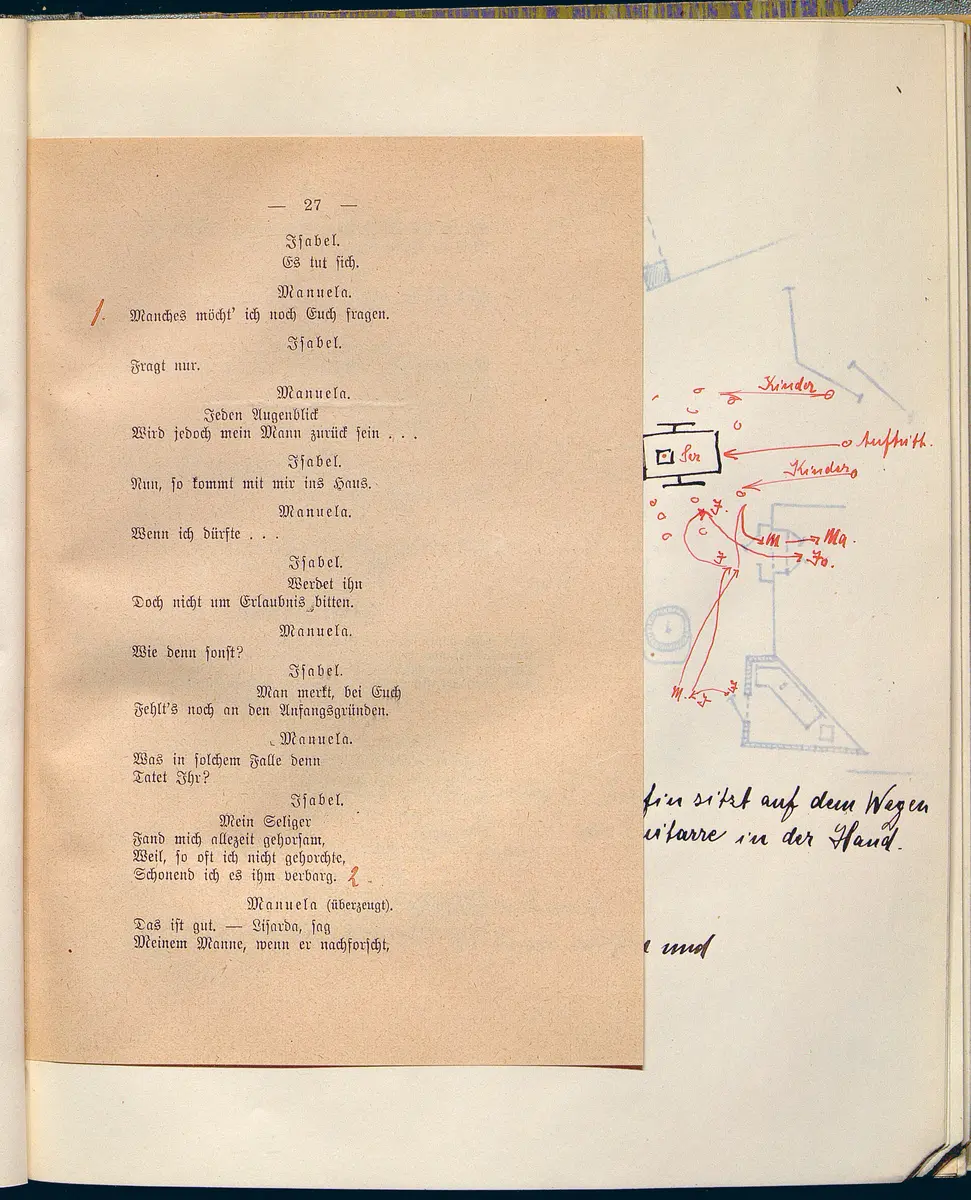 — 27 —
Isabel.
Es tut sich.
Manuela.
1.
Manches möcht' ich noch Euch fragen.
Isabel.
Fragt nur.
Manuela.
Jeden Augenblick
Wird jedoch mein Mann zurück sein . . .
Isabel.
Nun, so kommt mit mir ins Haus.
Manuela.
Wenn ich dürfte . . .
Isabel.
Werdet ihn
Doch nicht um Erlaubnis bitten.
Manuela.
Wie denn sonst?
Isabel.
Man merkt, bei Euch
Fehlt's noch an den Anfangsgründen.
Manuela.
Was in solchem Falle denn
Tatet Ihr?
Isabel.
Mein Seliger
Fand mich allezeit gehorsam,
Weil, so oft ich nicht gehorchte,
Schonend ich es ihm verbarg. 2
Manuela (überzeugt).
Das ist gut. — Lisarda, sag
Meinem Manne, wenn er nachforscht,
Kinder
Auftritt.
Ser
Kinder
J.
M
Ma.
Jo.
J
M.
J
J
fin sitzt auf dem Wagen
uitarre in der Hand.
und